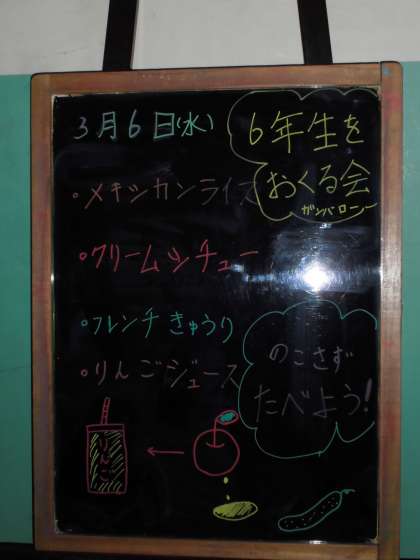 3月6日(水)
6年生を
おくる会
ガンバロー
・メキシカンライス
・クリームシチュー
・フレンチきゅうり
・りんごジュース
のこさず
たべよう!
りんご